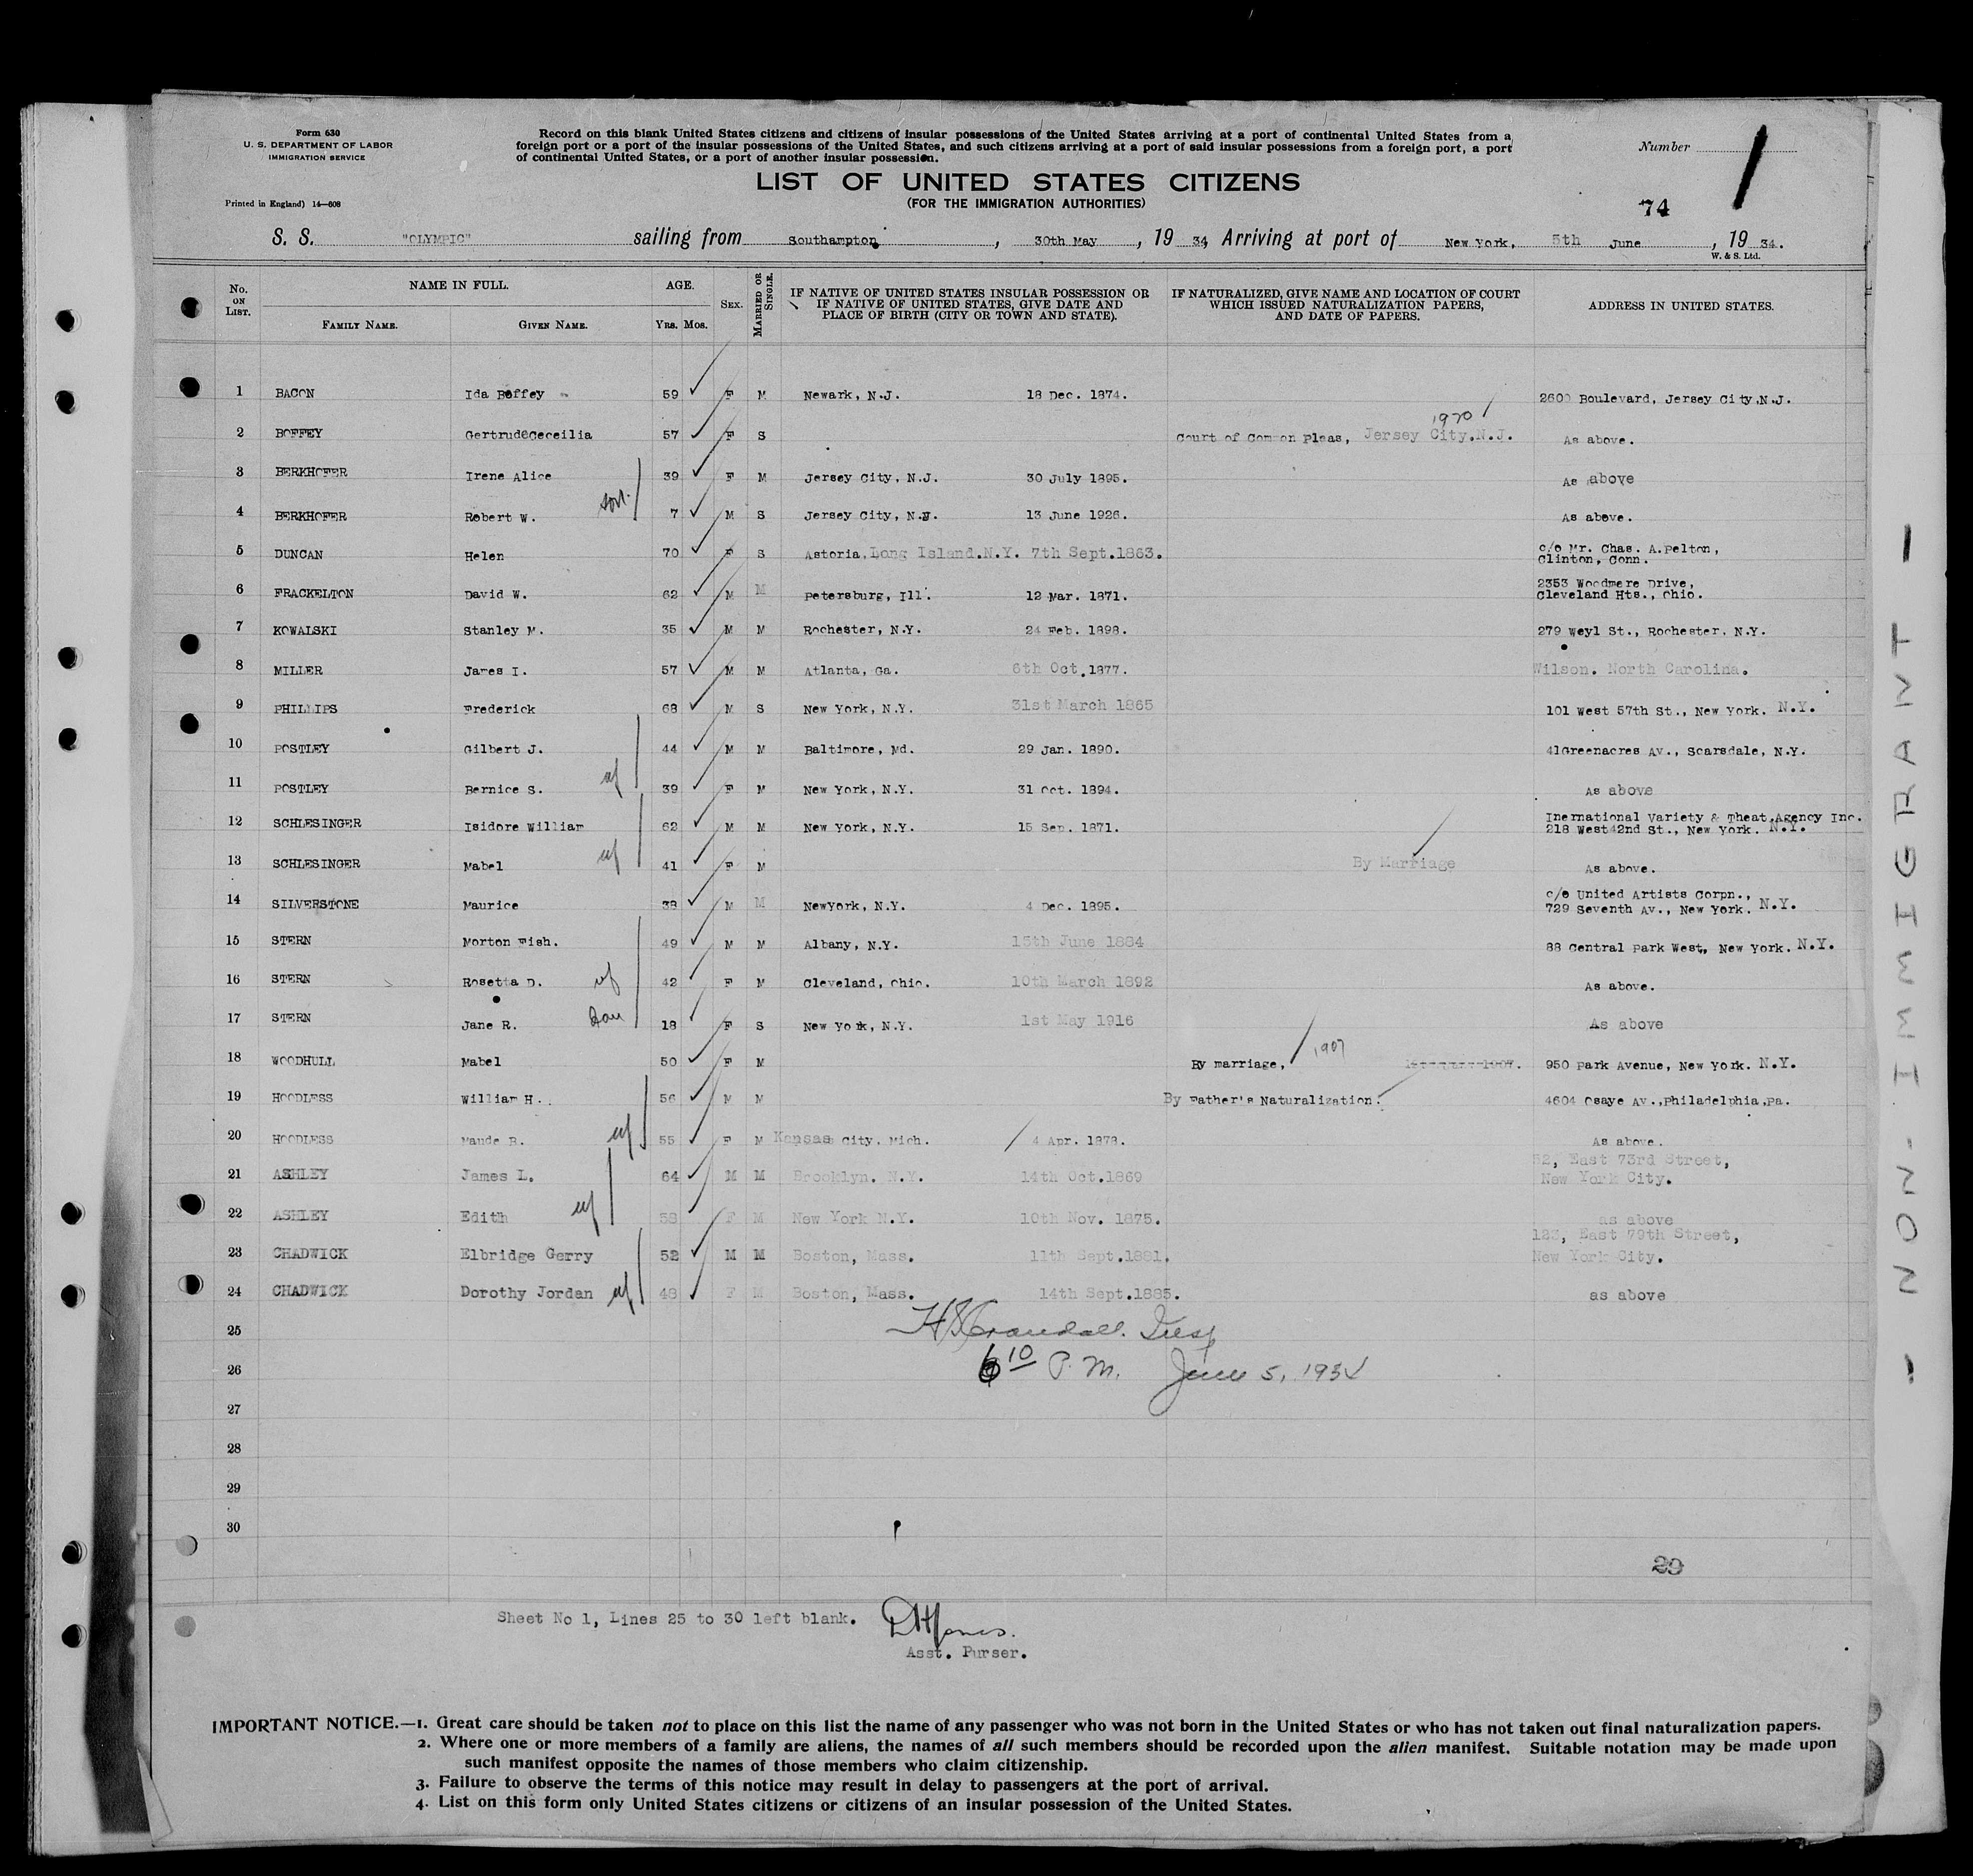 Form 630
U. S. DEPARTMENT OF LABOR
IMMIGRATION SERVICE
Printed in England) 14—608
Record on this blank United States citizens and citizens of insular possessions of the United States arriving at a port of continental United States from a
foreign port or a port of the insular possessions of the United States, and such citizens arriving at a port of said insular possessions from a foreign port, a port
of continental United States, or a port of another insular possession.
Number
1
LIST OF UNITED STATES CITIZENS
(FOR THE IMMIGRATION AUTHORITIES)
74
S. S. "OLYMPIC" sailing from Southampton, 30th May, 19 34, Arriving at port of New York, 5th June, 19 34.
W. & S. Ltd.
No. ON LIST. NAME IN FULL. FAMILY NAME. GIVEN NAME. AGE. YRS. MOS. SEX. MARRIED OR SINGLE. IF NATIVE OF UNITED STATES INSULAR POSSESSION OR IF NATIVE OF UNITED STATES, GIVE DATE AND PLACE OF BIRTH (CITY OR TOWN AND STATE). IF NATURALIZED, GIVE NAME AND LOCATION OF COURT WHICH ISSUED NATURALIZATION PAPERS, AND DATE OF PAPERS. ADDRESS IN UNITED STATES.
1 BACON Ida Boffey 59 F M Newark, N.J. 18 Dec. 1874. 2600 Boulevard, Jersey City.N.J.
2 BOFFEY GertrudeCeceilia 57 F S Court of Common Pleas, Jersey City.N.J. 1920 As above.
3 BERKHOFER Irene Alice 39 F M Jersey City, N.J. 30 July 1895. As above
4 BERKHOFER Robert W. son. 7 M S Jersey City, N.J. 13 June 1926. As above.
5 DUNCAN Helen 70 F S Astoria,Long Island.N.Y. 7th Sept.1863. c/o Mr. Chas. A.Pelton, Clinton, Conn.
6 FRACKELTON David W. 62 M M Petersburg, Ill. 12 Mar. 1871. 2353 Woodmere Drive, Cleveland Hts., Ohio.
7 KOWALSKI Stanley M. 35 M M Rochester, N.Y. 24 Feb. 1898. 279 Weyl St., Rochester, N.Y.
8 MILLER James I. 57 M M Atlanta, Ga. 6th Oct.1877. Wilson. North Carolina.
9 PHILLIPS Frederick 68 M S New York, N.Y. 31st March 1865 101 West 57th St., New York. N.Y.
10 POSTLEY Gilbert J. 44 M M Baltimore, Md. 29 Jan. 1890. 41Greenacres Av., Scarsdale, N.Y.
11 POSTLEY Bernice S. wf 39 F M New York, N.Y. 31 Oct. 1894. As above
12 SCHLESINGER Isidore William 62 M M New York, N.Y. 15 Sep. 1871. Inernational Variety & Theat.Agency Inc. 218 West42nd St., New York. N.Y.
13 SCHLESINGER Mabel wf 41 F M By Marriage As above.
14 SILVERSTONE Maurice 38 M M NewYork, N.Y. 4 Dec. 1895. c/o United Artists Corpn., 729 Seventh Av., New York. N.Y.
15 STERN Morton Fish. 49 M M Albany, N.Y. 15th June 1884 88 Central Park West, New York. N.Y.
16 STERN Rosetta D. wf 42 F M Cleveland, Ohio. 10th March 1892 As above.
17 STERN Jane R. Dau 18 F S New York, N.Y. 1st May 1916 As above
18 WOODHULL Mabel 50 F M By marriage, 1907 1907. 950 Park Avenue, New York. N.Y.
19 HOODLESS William H. 56 M M By Father's Naturalization. 4604 Osaye Av.,Philadelphia,Pa.
20 HOODLESS Maude B. wf 55 F M Kansas City, Mich. 4 Apr. 1878. As above.
21 ASHLEY James L. 64 M M Brooklyn. N.Y. 14th Oct.1869 52, East 73rd Street, New York City.
22 ASHLEY Edith wf 58 F M New York N.Y. 10th Nov. 1875. as above
23 CHADWICK Elbridge Gerry 52 M M Boston, Mass. 11th Sept.1881. 123, East 79th Street, New York City.
24 CHADWICK Dorothy Jordan wf 48 F M Boston, Mass. 14th Sept.1885. as above
25 Crandall. Insp
26 6 10 P.M. June 5, 1934
27
28
29
30
29
Sheet No 1, Lines 25 to 30 left blank.
Jones.
Asst. Purser.
IMPORTANT NOTICE.—1. Great care should be taken not to place on this list the name of any passenger who was not born in the United States or who has not taken out final naturalization papers.
2. Where one or more members of a family are aliens, the names of all such members should be recorded upon the alien manifest. Suitable notation may be made upon
such manifest opposite the names of those members who claim citizenship.
3. Failure to observe the terms of this notice may result in delay to passengers at the port of arrival.
4. List on this form only United States citizens or citizens of an insular possession of the United States.
- NON-IMMIGRANT -